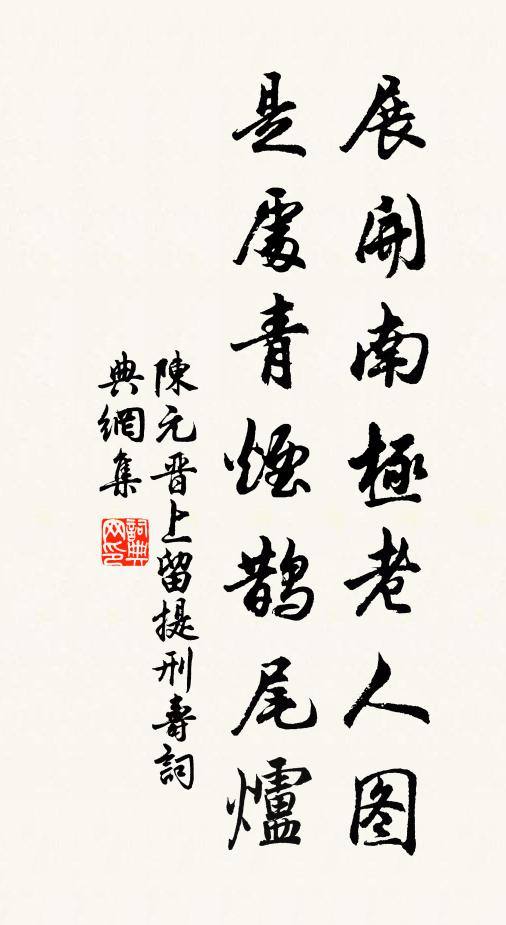 展開南極老人图
是處青煙鵲尾爐
陳元晋上留提刑壽詞
典網集
詞典网印